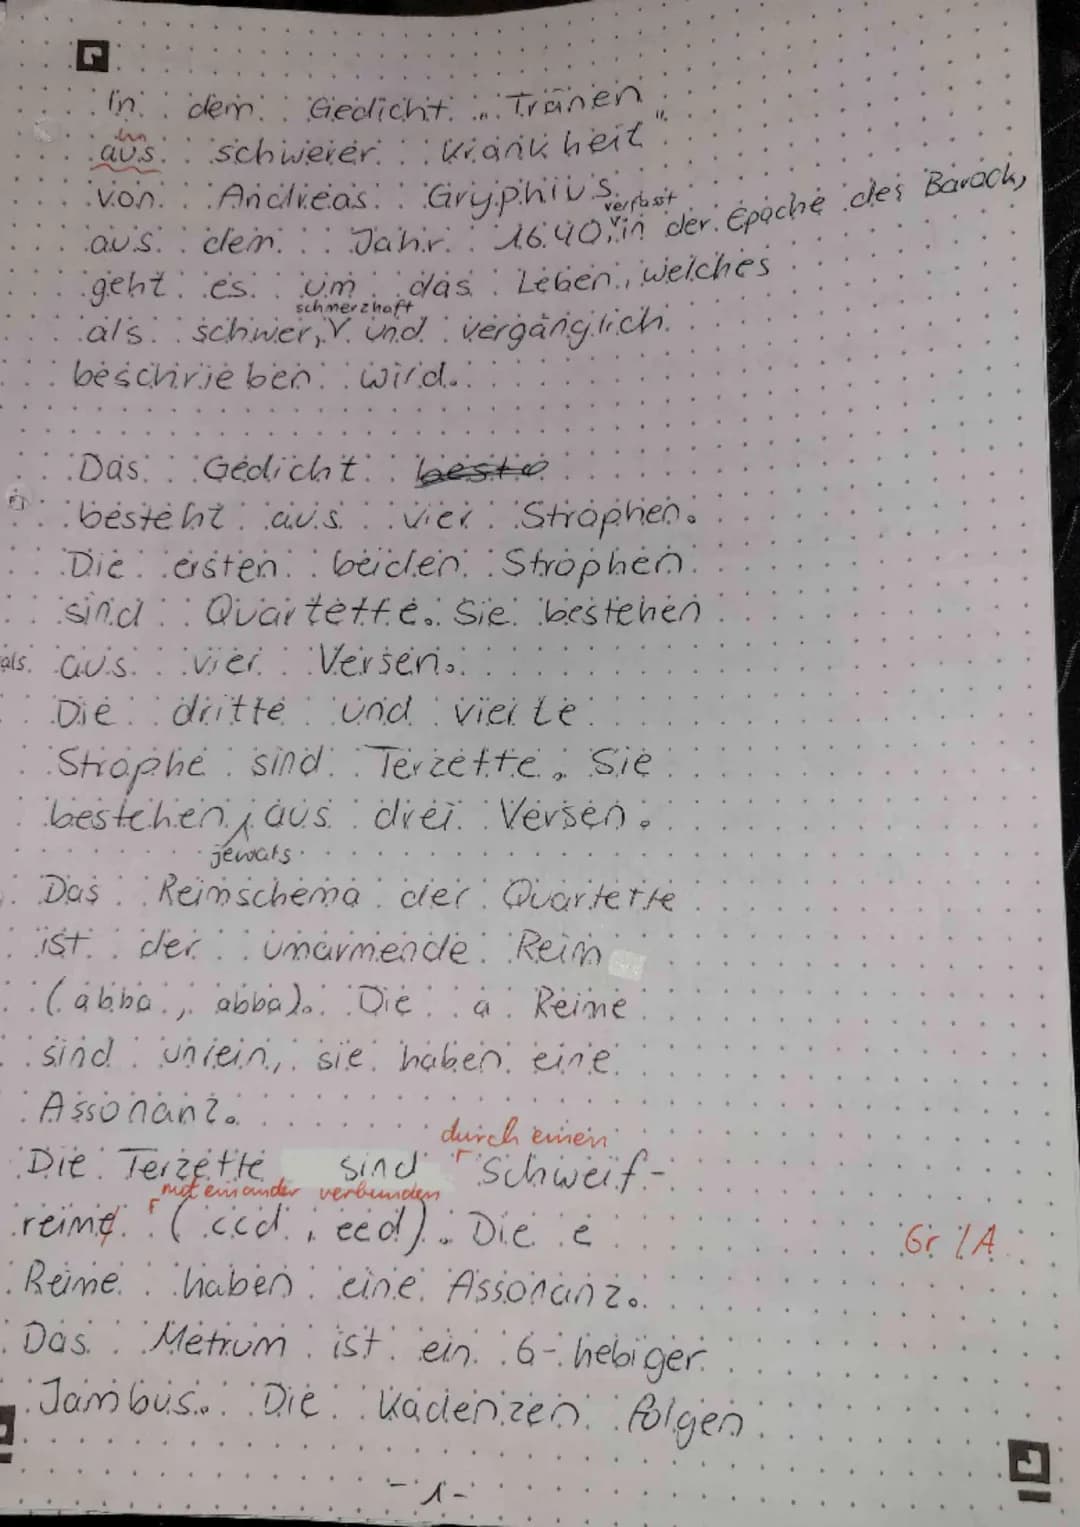 In dem Gedicht „Tränen
in
aus schwerer Krankheit"
von Andreas Gryphius
verfasst
aus dem Jahr 1640, in der Epoche des Barock,
geht es um das Leben, welches
schmerzhaft
als schwer, und vergänglich
beschrieben wird.
Das Gedicht beste
besteht aus vier Strophen.
Die ersten beiden Strophen
sind Quartette. Sie bestehen
als aus vier Versen.
Die dritte und vierte
Strophe sind Terzette. Sie
bestehen aus drei Versen.
jewals
Das Reimschema der Quartette
ist der umarmende Reim
(abba, abba). Die a Reime
sind unrein, sie haben eine
Assonanz.
durch einen
Die Terzette sind Schweif-
miteinander verbunden
reime (ccd, eed). Die e
Gr / A
Reime haben eine Assonanz.
Das Metrum ist ein 6-hebiger
Jambus. Die Kadenzen folgen
-1-